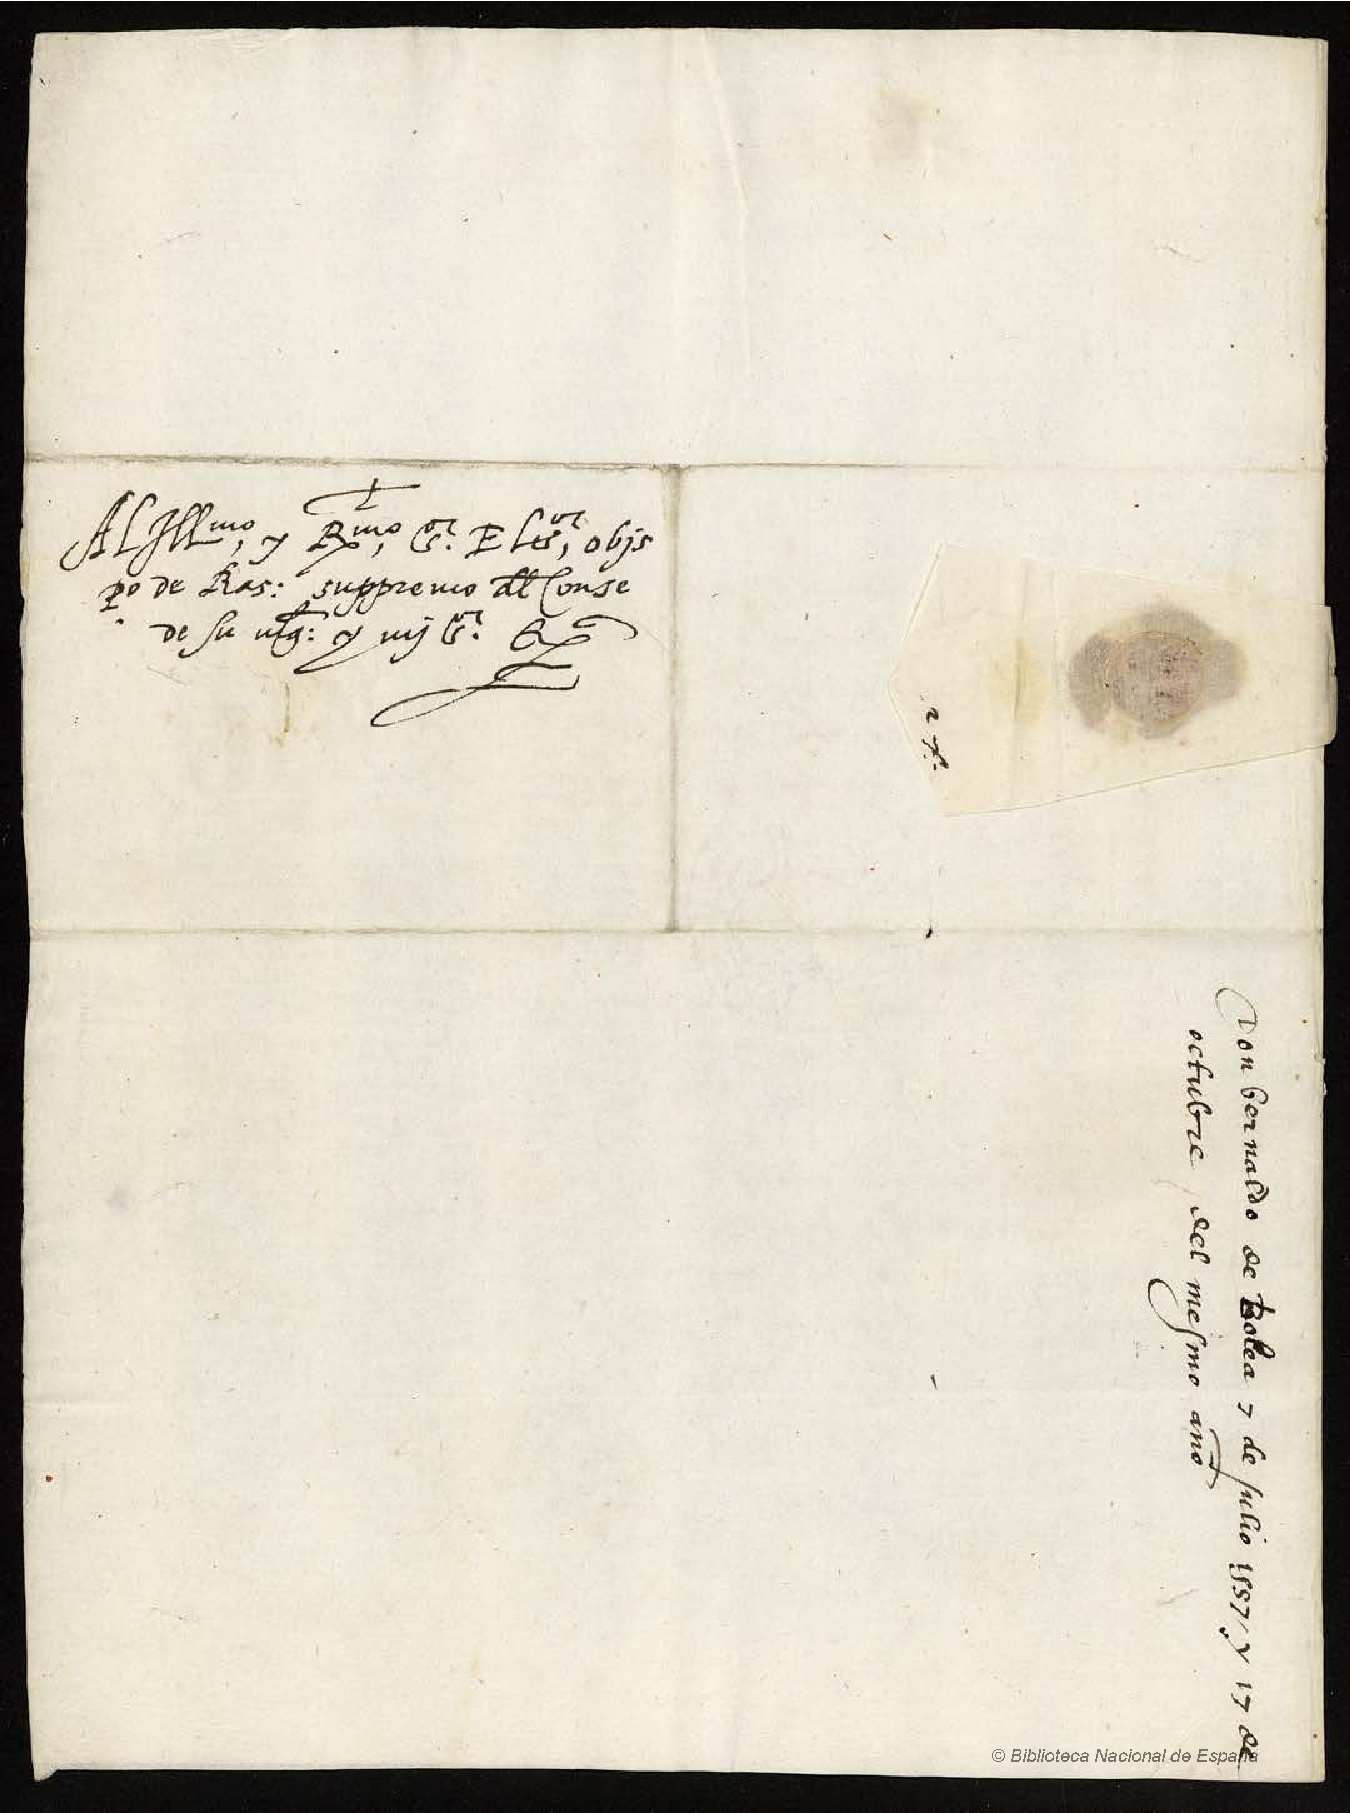 Al Illmo, y Rmo, Sor. El Sor, obis
po de Ras: suppremo dl Conse
de su mg: y mj Sor.
Don bernaldo de Bolea 7 de julio 1557, y 17 de
octubre del mesmo año
© Biblioteca Nacional de España